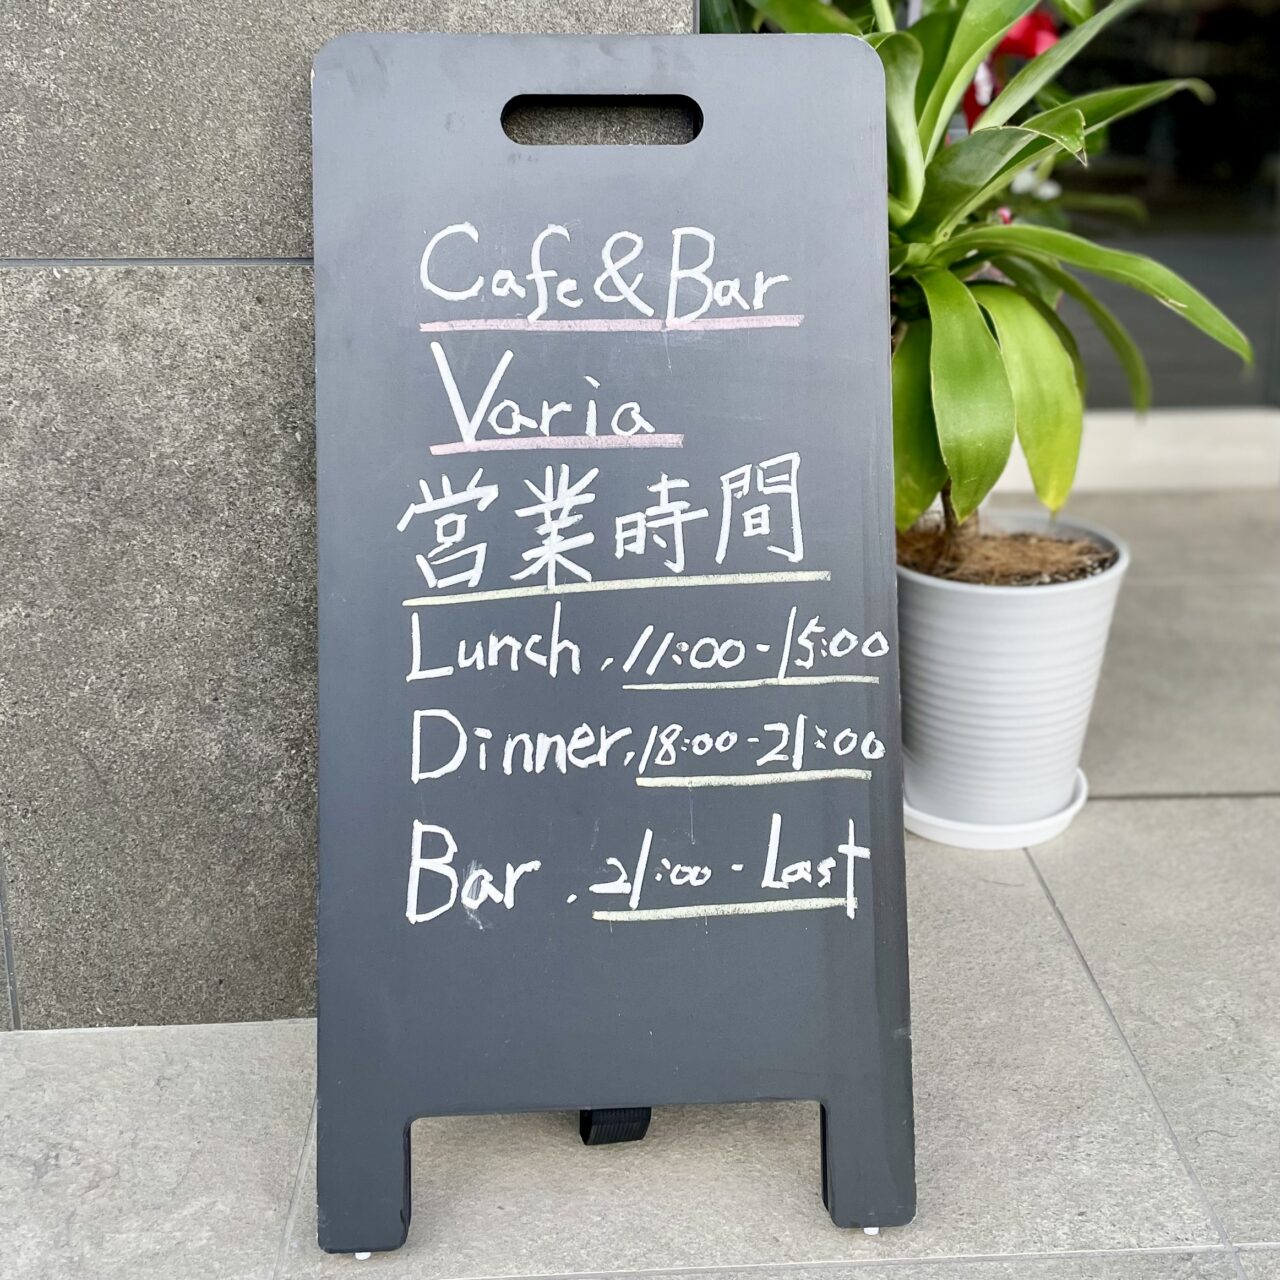 Cafe & Bar
Varia
営業時間
Lunch. 11:00-15:00
Dinner. 18:00-21:00
Bar. 21:00-Last